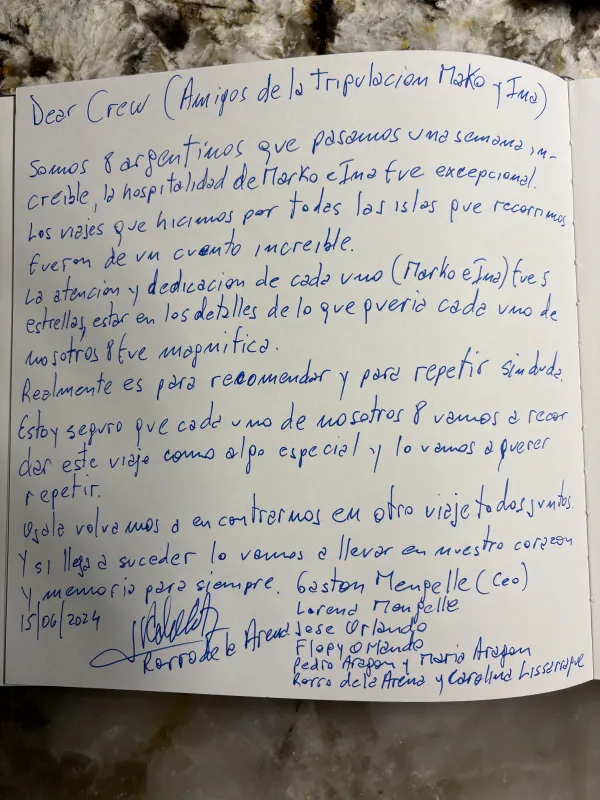 Dear Crew (Amigos de la tripulacion Mako y Ina)
Somos 8 argentinos que pasamos una semana in-
creible, la hospitalidad de Marko e Ina fue excepcional.
Los viajes que hicimos por todas las islas que recorrimos
fueron de un cuento increible.
La atencion y dedicacion de cada uno (Marko e Ina) fue 5
estrellas, estar en los detalles de lo que queria cada uno de
nosotros 8 fue magnifica.
Realmente es para recomendar y para repetir sin duda.
Estoy seguro que cada uno de nosotros 8 vamos a recor
dar este viaje como algo especial y lo vamos a querer
repetir.
Ojala volvamos a encontrarnos en otro viaje todos juntos.
Y si llega a suceder lo vamos a llevar en nuestro corazon
Y memoria para siempre. Gaston Mengelle (Ceo)
15/06/2024 Lorena Mengelle
Jose Orlando
Rorro de la Arena Flopy Orlando
Pedro Aragon y Maria Aragon
Rorro de la Arena y Carolina Lissarrague